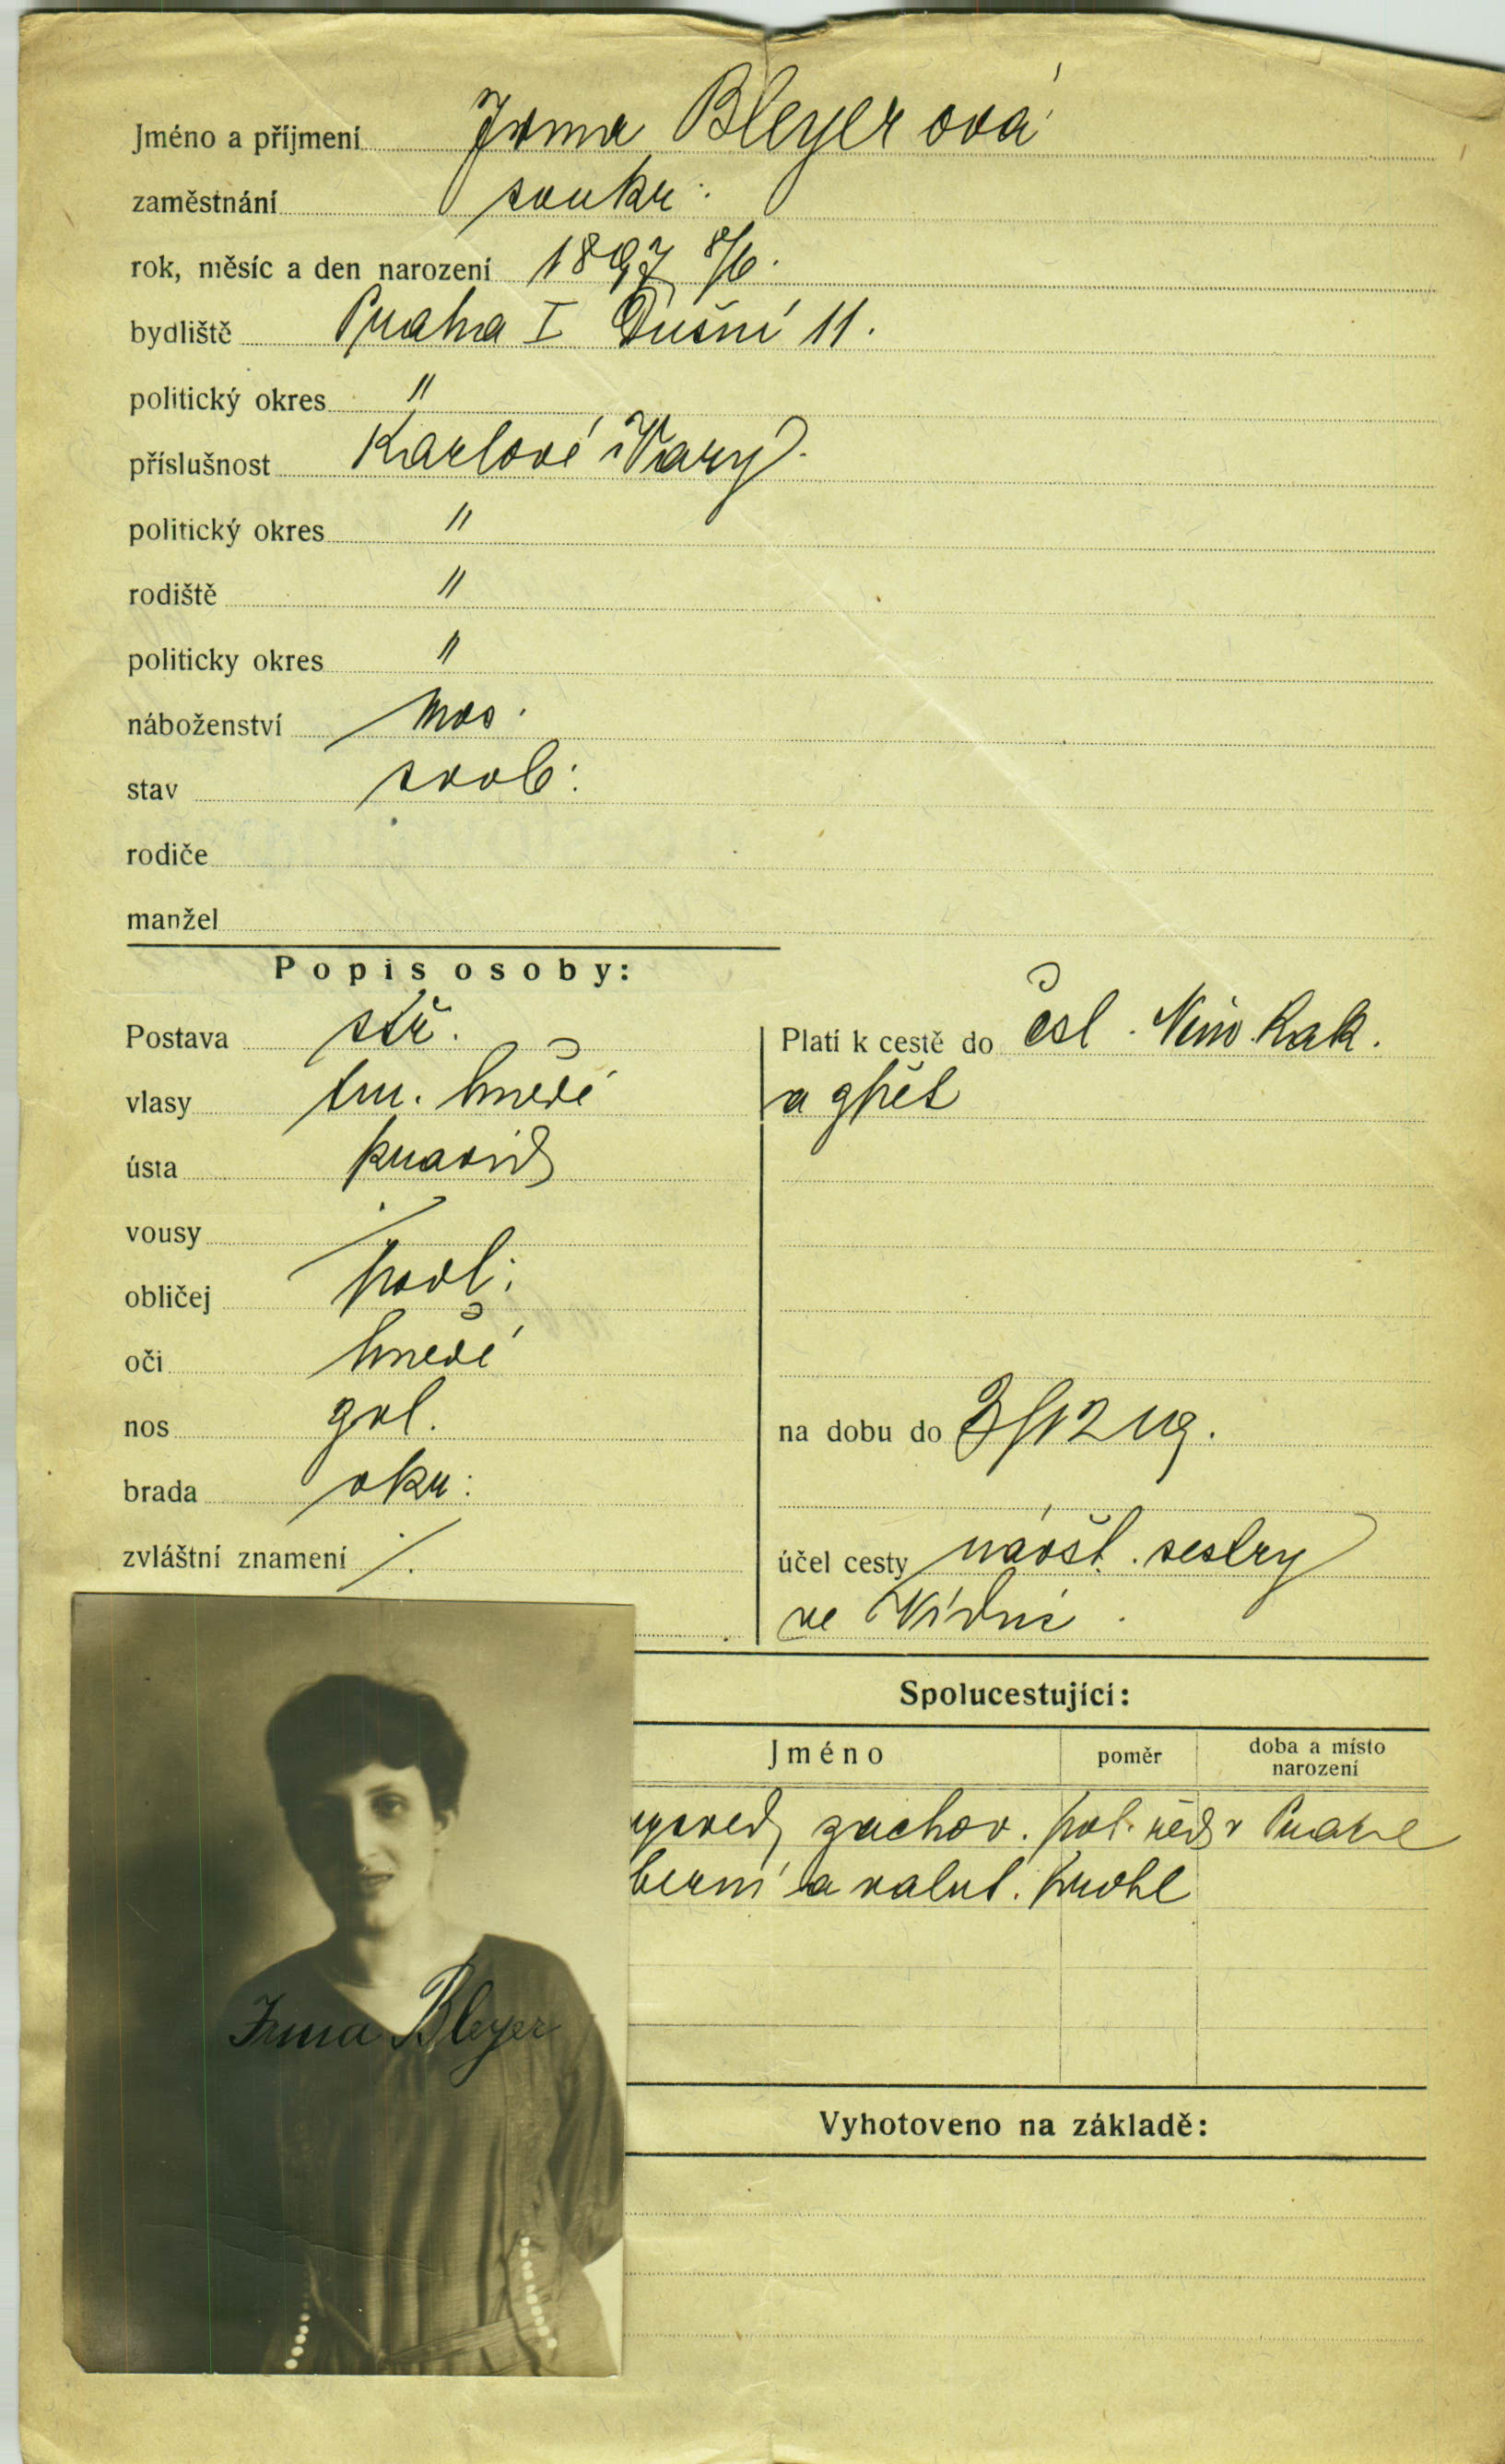 Jméno a příjmení Irma Bleyerová
zaměstnání soukr.
rok, měsíc a den narození 1897 8/6.
bydliště Praha I Dušní 11.
politický okres "
příslušnost Karlové Vary.
politický okres "
rodiště "
politicky okres "
náboženství mos.
stav svob:
rodiče
manžel
Popis osoby:
Postava stř.
vlasy tm. hnědé
ústa pravid
vousy /
obličej podl:
oči hnědé
nos
brada okr:
zvláštní znamení /.
Platí k cestě do čsl. Něm. Rak.
a zpět
na dobu do
účel cesty návšt. sestry
ve Vídni.
Spolucestující:
Jméno
poměr
doba a místo
narození
zachov. pol. řed. v Praze
berní a valut. prohl
Irma Bleyer
Vyhotoveno na základě: